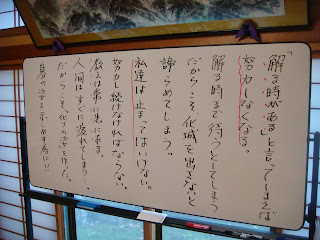 「解る時がある」と言ってしまえば
努力しなくなる。
解る時まで待つとしてしまう
だからこそ化城を出さないと
諦らめてしまう。
私達は止まってはいけない。
努力し続けなければならない。
教えは常に患に来る。
人間はすぐに疲れてしまう…
だからこそ、化りの城を作った。